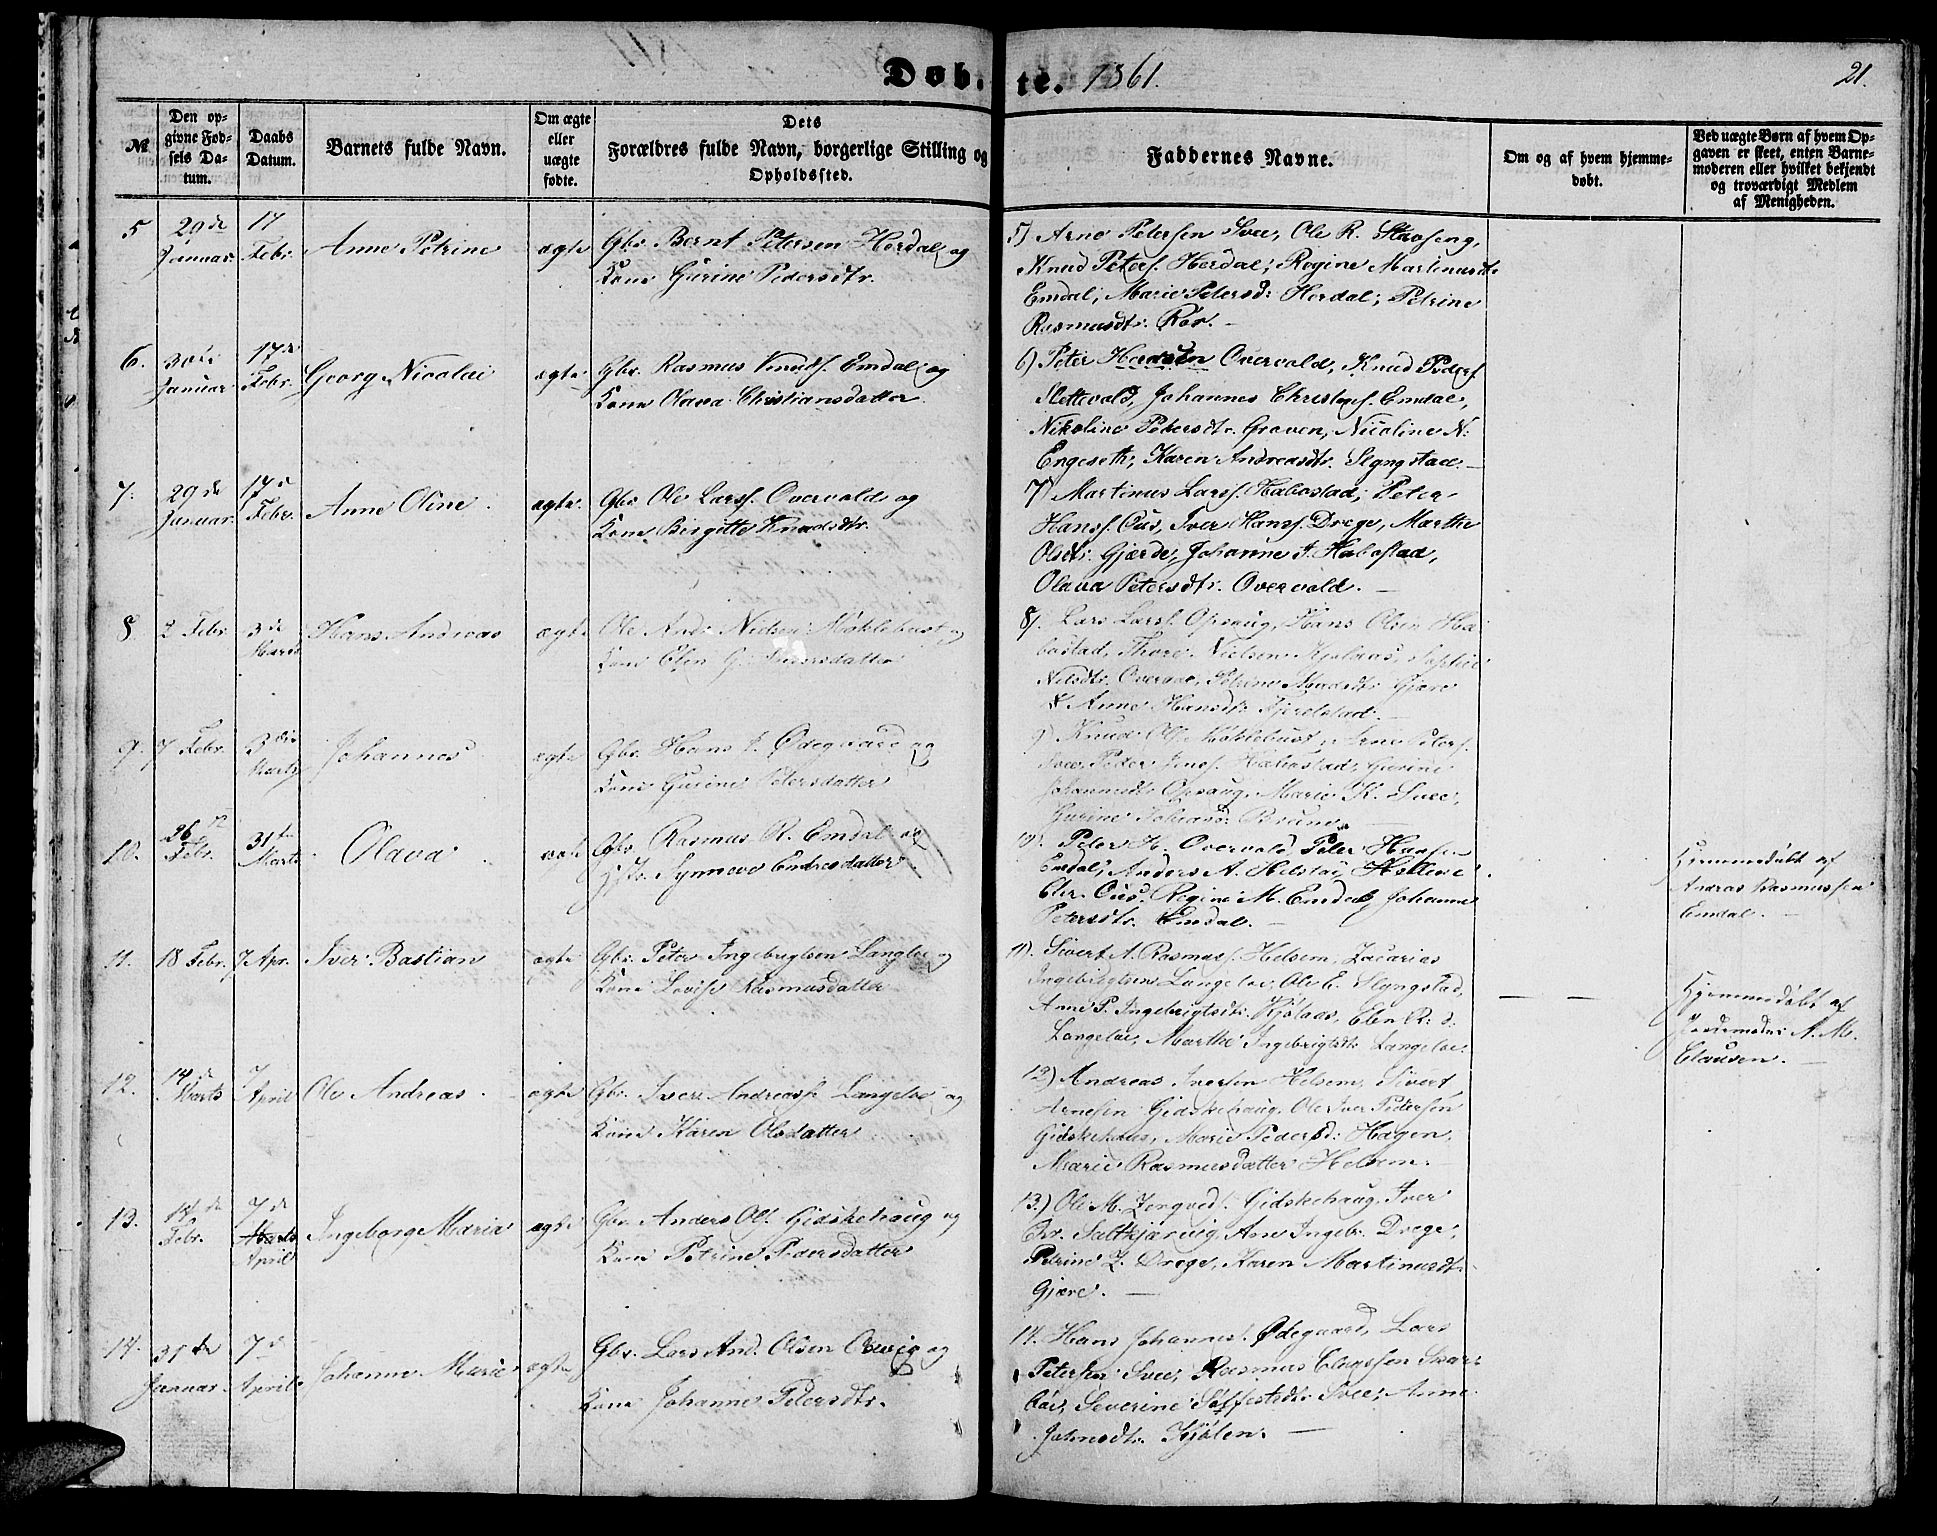 Døb.
te. 1861.
21.
№
Den opgivne Fødsels Datum.
Daabs Datum.
Barnets fulde Navn.
Om ægte eller uægte fødte.
Dets
Forældres fulde Navn, borgerlige Stilling og
Opholdssted.
Faddernes Navne.
Om og af hvem hjemmedøbt.
Ved uægte Børn af hvem Opgaven er skeet, enten Barnemoderen eller hvilket bekjendt og troværdigt Medlem af Menigheden.
5 29de Januar. 17 Febr. Anne Petrine ægte Gbr. Bernt Petersen Herdal og
Kone Gurine Pedersdtr.
5) Arne Petersen Svee, Ole R. Stavseng,
Knud Peters. Herdal; Regine Martinusdt.
Emdal; Marie Petersd: Herdal; Petrine
Rasmusdtr. Rør. –
6. 30de Januar 17de Febr. Georg Nicolai ægte Gbr. Rasmus Knuds. Emdal og
Kone Olava Christiansdatter.
6) Peter Overvold, Knud Peders.
Slettevold, Johannes Emdal,
Nikoline Petersdtr. Graven, Nicoline N:
Engeseth; Karen Andreasdtr. Slyngstad. –
7. 29de Januar. 17de Febr. Anne Oline. ægte. Gbr. Ole Larss. Overvold og
Kone Birgitte Knudsdtr.
7) Martinus Larss. Habostad; Peter
Hanss. Ous, Iver Hanss. Drege, Marthe
Olsdtr. Gjærde, Johanne I. Habostad,
Olava Petersdtr. Overvold. –
8 2 Febr. 3de Marts Hans Andreas ægte Ole And: Nielsen Møklebust og
Kone Elen G.
8). Lars Larss. Opsaug, Hans Olsen Habostad, Thore Nielsen Kjølaas,
Nilsdtr. Petrine Gjære
& Anne Hansdt: Fjørtstad. –
9. 7 Febr. 3die Marts Johannes ægte Gbr. Hans I. Ødegaard og
Kone Gurine Petersdatter
9) Knud Ols. Møklebust, Arne Peters.
Svee, Peder Habostad, Gurine
Johannesdtr. Opsaug, Marie K. Svee,
Gurine Brune
10. 26de Febr. 31te Marts Olava. ægte Gbr. Rasmus R. Emdal og
Synneve Endresdatter
10. Peter H. Overvold Peter Hansen
Emdal; Anders A. Helstad,
Ous, Regine M. Emdal, Johanne
Petersdtr. Emdal. –
Hjemmedøbt af
Andras Rasmussen
Emdal. –
11. 18 Febr. 7 Apr. Iver Bastian ægte Gbr. Peter Ingebrigtsen Langlo og
Kone Lovise Rasmusdatter
11). Sivert A. Rasmus. Helsem, Zacarias
Ingebrigtsen Langeloe, Ole E. Slyngstad,
Anne P. Ingebrigtsdtr. Kjølaas, Elen R: d.
Langeloe, Marthe Ingebrigtsdt: Langeloe.
Hjemmedøbt af
Jordemoder A. M.
Clausen. –
12. 14de Marts 7 April Ole Andreas. ægte Gbr. Iver Andreass. Langeloe og
Kone Karen Olsdatter
12) Andreas Iversen Helsem, Sivert
Arnesen Gidskehaug, Ole Iver Pedersen
Gidskehaug, Marie Pedersd: Hagen,
Marie Rasmusdatter Helsem.
13. 14de Febr. 7de Marts April Ingeborg Maria ægte Gbr. Anders Ols. Gidskehaug og
Kone Petrine Pedersdatter
13.) Ole M. Gidskehaug, Iver
Chr. Saltkjærvig, Arne Ingebr. Drege,
Petrine Z. Drege, Karen Martinusdt.
Gjære. –
14. 31te Januar. 7de April. Johanne Marie ægte Gbr. Lars And. Olsen Overig og
Kone Johanne Petersdtr.
14. Hans Johanness. Ødegaard, Lars
Petersen Svee, Rasmus
Severine Svee; Anne
Kjølen. –